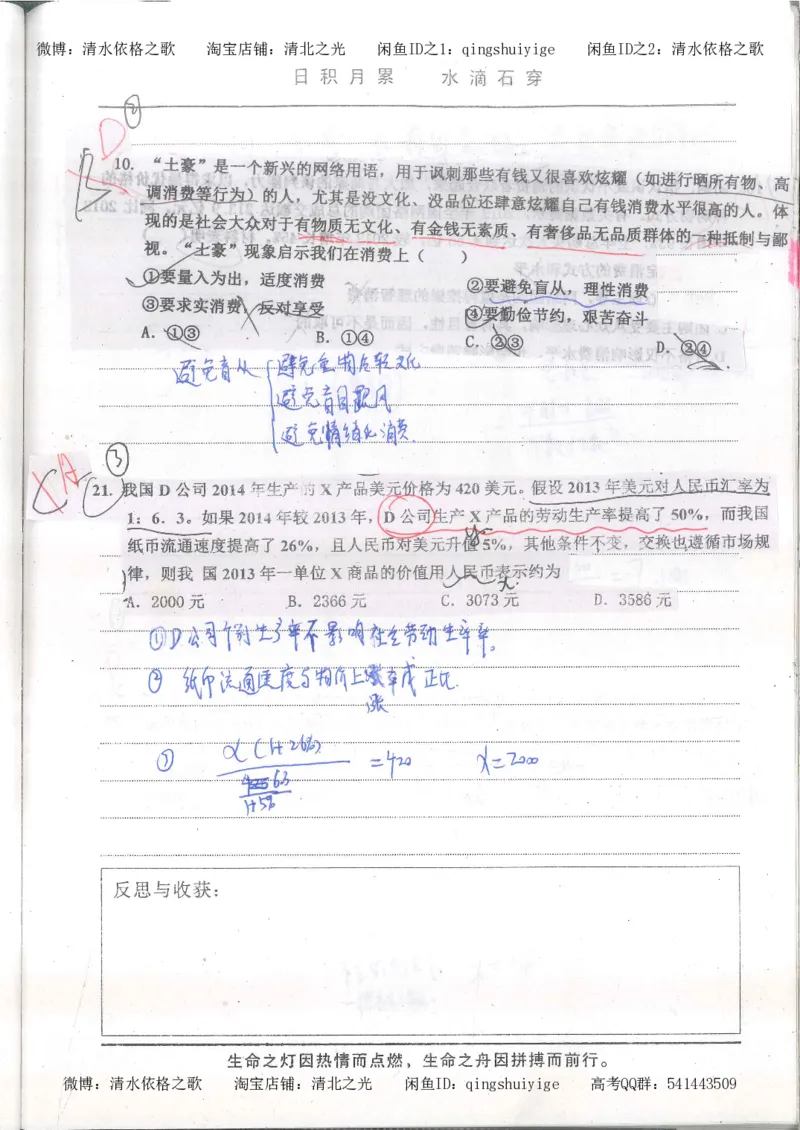 微博：清水依格之歌 淘宝店铺：清北之光 闲鱼ID之1：qingshuiyige 闲鱼ID之2：清水依格之歌
日积月累 水滴石穿
②
D
10. “土豪”是一个新兴的网络用语，用于讽刺那些有钱又很喜欢炫耀（如进行晒所有物、高
调消费等行为）的人，尤其是没文化、没品位还肆意炫耀自己有钱消费水平很高的人。体
现的是社会大众对于有物质无文化、有金钱无素质、有奢侈品无品质群体的一种抵制与鄙
视。“土豪”现象启示我们在消费上（ ）
①要量入为出，适度消费 ②要避免盲从，理性消费
③要求实消费，反对享受 ④要勤俭节约，艰苦奋斗
A. ①③ B. ①④ C. ②③ D. ②④
避免盲从 避免重物质轻文化
避免盲目跟风
避免情绪化消费.
③
A
21. 我国 D 公司 2014 年生产的 X 产品美元价格为 420 美元。假设 2013 年美元对人民币汇率为
1：6．3。如果 2014 年较 2013 年，D 公司生产 X 产品的劳动生产率提高了 50%，而我国
纸币流通速度提高了 26%，且人民币对美元升值 5%，其他条件不变，交换也遵循市场规
律，则我 国 2013 年一单位 X 商品的价值用人民币表示约为
A．2000 元 B．2366 元 C．3073 元 D．3586 元
①D公司个别生产率不影响社会劳动生产率。
② 纸币流通速度与物价上涨率成正比.
涨
③ x(1+26%) =420 x=2000
6.3
1+5%
反思与收获：
生命之灯因热情而点燃，生命之舟因拼搏而前行。
微博：清水依格之歌 淘宝店铺：清北之光 闲鱼ID：qingshuiyige 高考QQ群：541443509